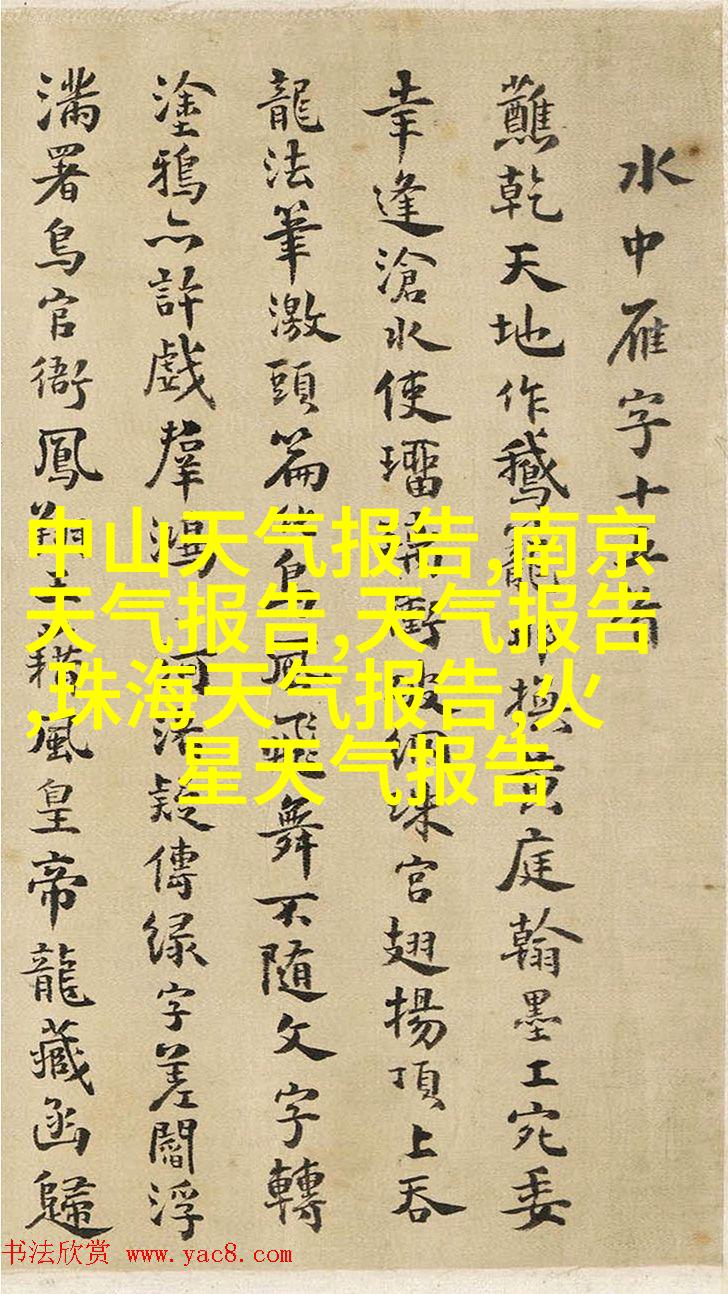 水中雁字十首
蘸乾天地作鵝籠換黃庭翰墨工宛委
幸逢滄水使破網珠宮翅揚頂上吞
龍法筆激頭篇鳥飛舞不隨文字轉
塗鴉亦許戲羣鴻疑傳緑字差閻浮
滿署鳥官衙鳳風皇帝龍藏函歸
中山天气报告,南京
天气报告,天气报告
,珠海天气报告,火
星天气报告
书法欣赏 www.yac8.com